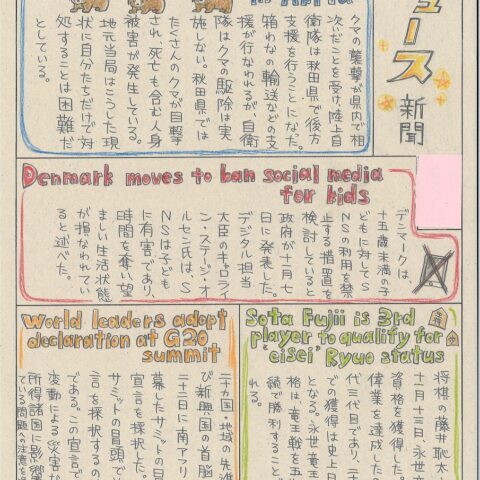 ュース
新聞
クマの襲撃が県内で相
次いだことを受け、陸上自
衛隊は秋田県で後方
支援を行うことになった。
箱わなの輸送などの支
援が行なわれるが、自衛
隊はクマの駆除は実
施しない。秋田県では
たくさんのクマが目撃
され、死亡も含む人身
被害が発生している。
地元当局はこうした現
状に自分たちだけで対
処することは困難だ
としている。
Denmark moves to ban social media
for kids
デンマークは
十五歳未満の子
どもに対してS
NSの利用を禁
止する措置を
検討していると
政府が十一月七
日に発表した。
デジタル担当
大臣のキャロライ
ン・ステージ・オ
ルセン氏は、S
NSは子ども
に有害であり、
時間を奪い望
ましい生活状態
が損なわれてい
ると述べた。
Sota Fujii is 3rd
player to qualify for
'eisei' Ryuo status
将棋の藤井聡太
十一月十三日、永世
資格を獲得した。
偉業を達成したの
代三代目であり、二十
での獲得は史上
となる。永世竜王
格は、竜王戦を五
続で勝利すること
れる。
World leaders adopt
declaration at G20
summit
二十カ国・地域の先進
び新興国の首脳
二十二日に南アフリ
幕したサミットの
宣言を採択した。
サミットの冒頭で
言を採択するの
である。この宣言で
変動による災害
所得諸国に影響
ている問題への注意を